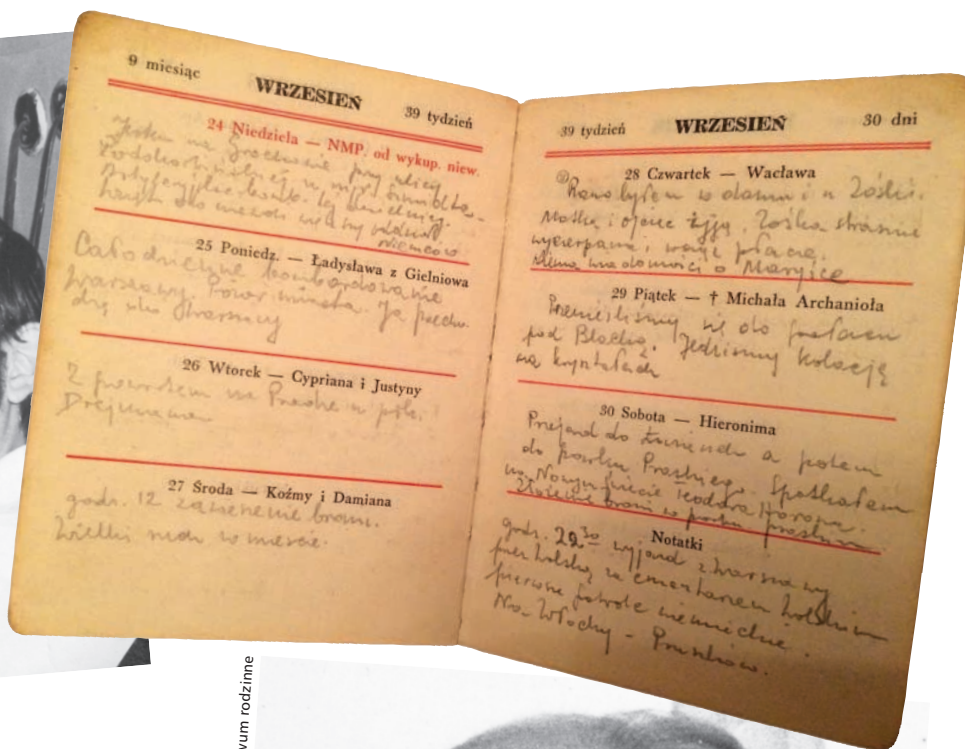 9 miesiąc WRZESIEŃ 39 tydzień
24 Niedziela — NMP. od wykup. niew.
Jestem na Grochowie przy ulicy
Podskarbińskiej
Niemców
25 Poniedz. — Ładysława z Gielniowa
Całodzienne bombardowanie
Warszawy. Pożar miasta. Ja
26 Wtorek — Cypriana i Justyny
Z powrotem na Pradze w
Drejmana
27 Środa — Koźmy i Damiana
godz. 12 zawieszenie broni.
Wielki ruch w mieście.
39 tydzień WRZESIEŃ 30 dni
28 Czwartek — Wacława
Rano byłem w domu i u Zośki.
Matka i ojciec żyją, Zośka strasznie
wyczerpana, wciąż płacze.
Niema wiadomości o
29 Piątek — † Michała Archanioła
Przenieśliśmy się do pałacu
pod Blachą. Jedliśmy kolację
na kryształach
30 Sobota — Hieronima
Przejazd do Łazienek a potem
do parku Praskiego. Spotkałem
na Nowym Świecie Teodora
Złożenie broni w parku praskim
Notatki
godz. 22³⁰ wyjazd z Warszawy
przez Wolską za cmentarzem Wolskim
pierwsze patrole niemieckie.
Na Włochy – Pruszków.
vum rodzinne